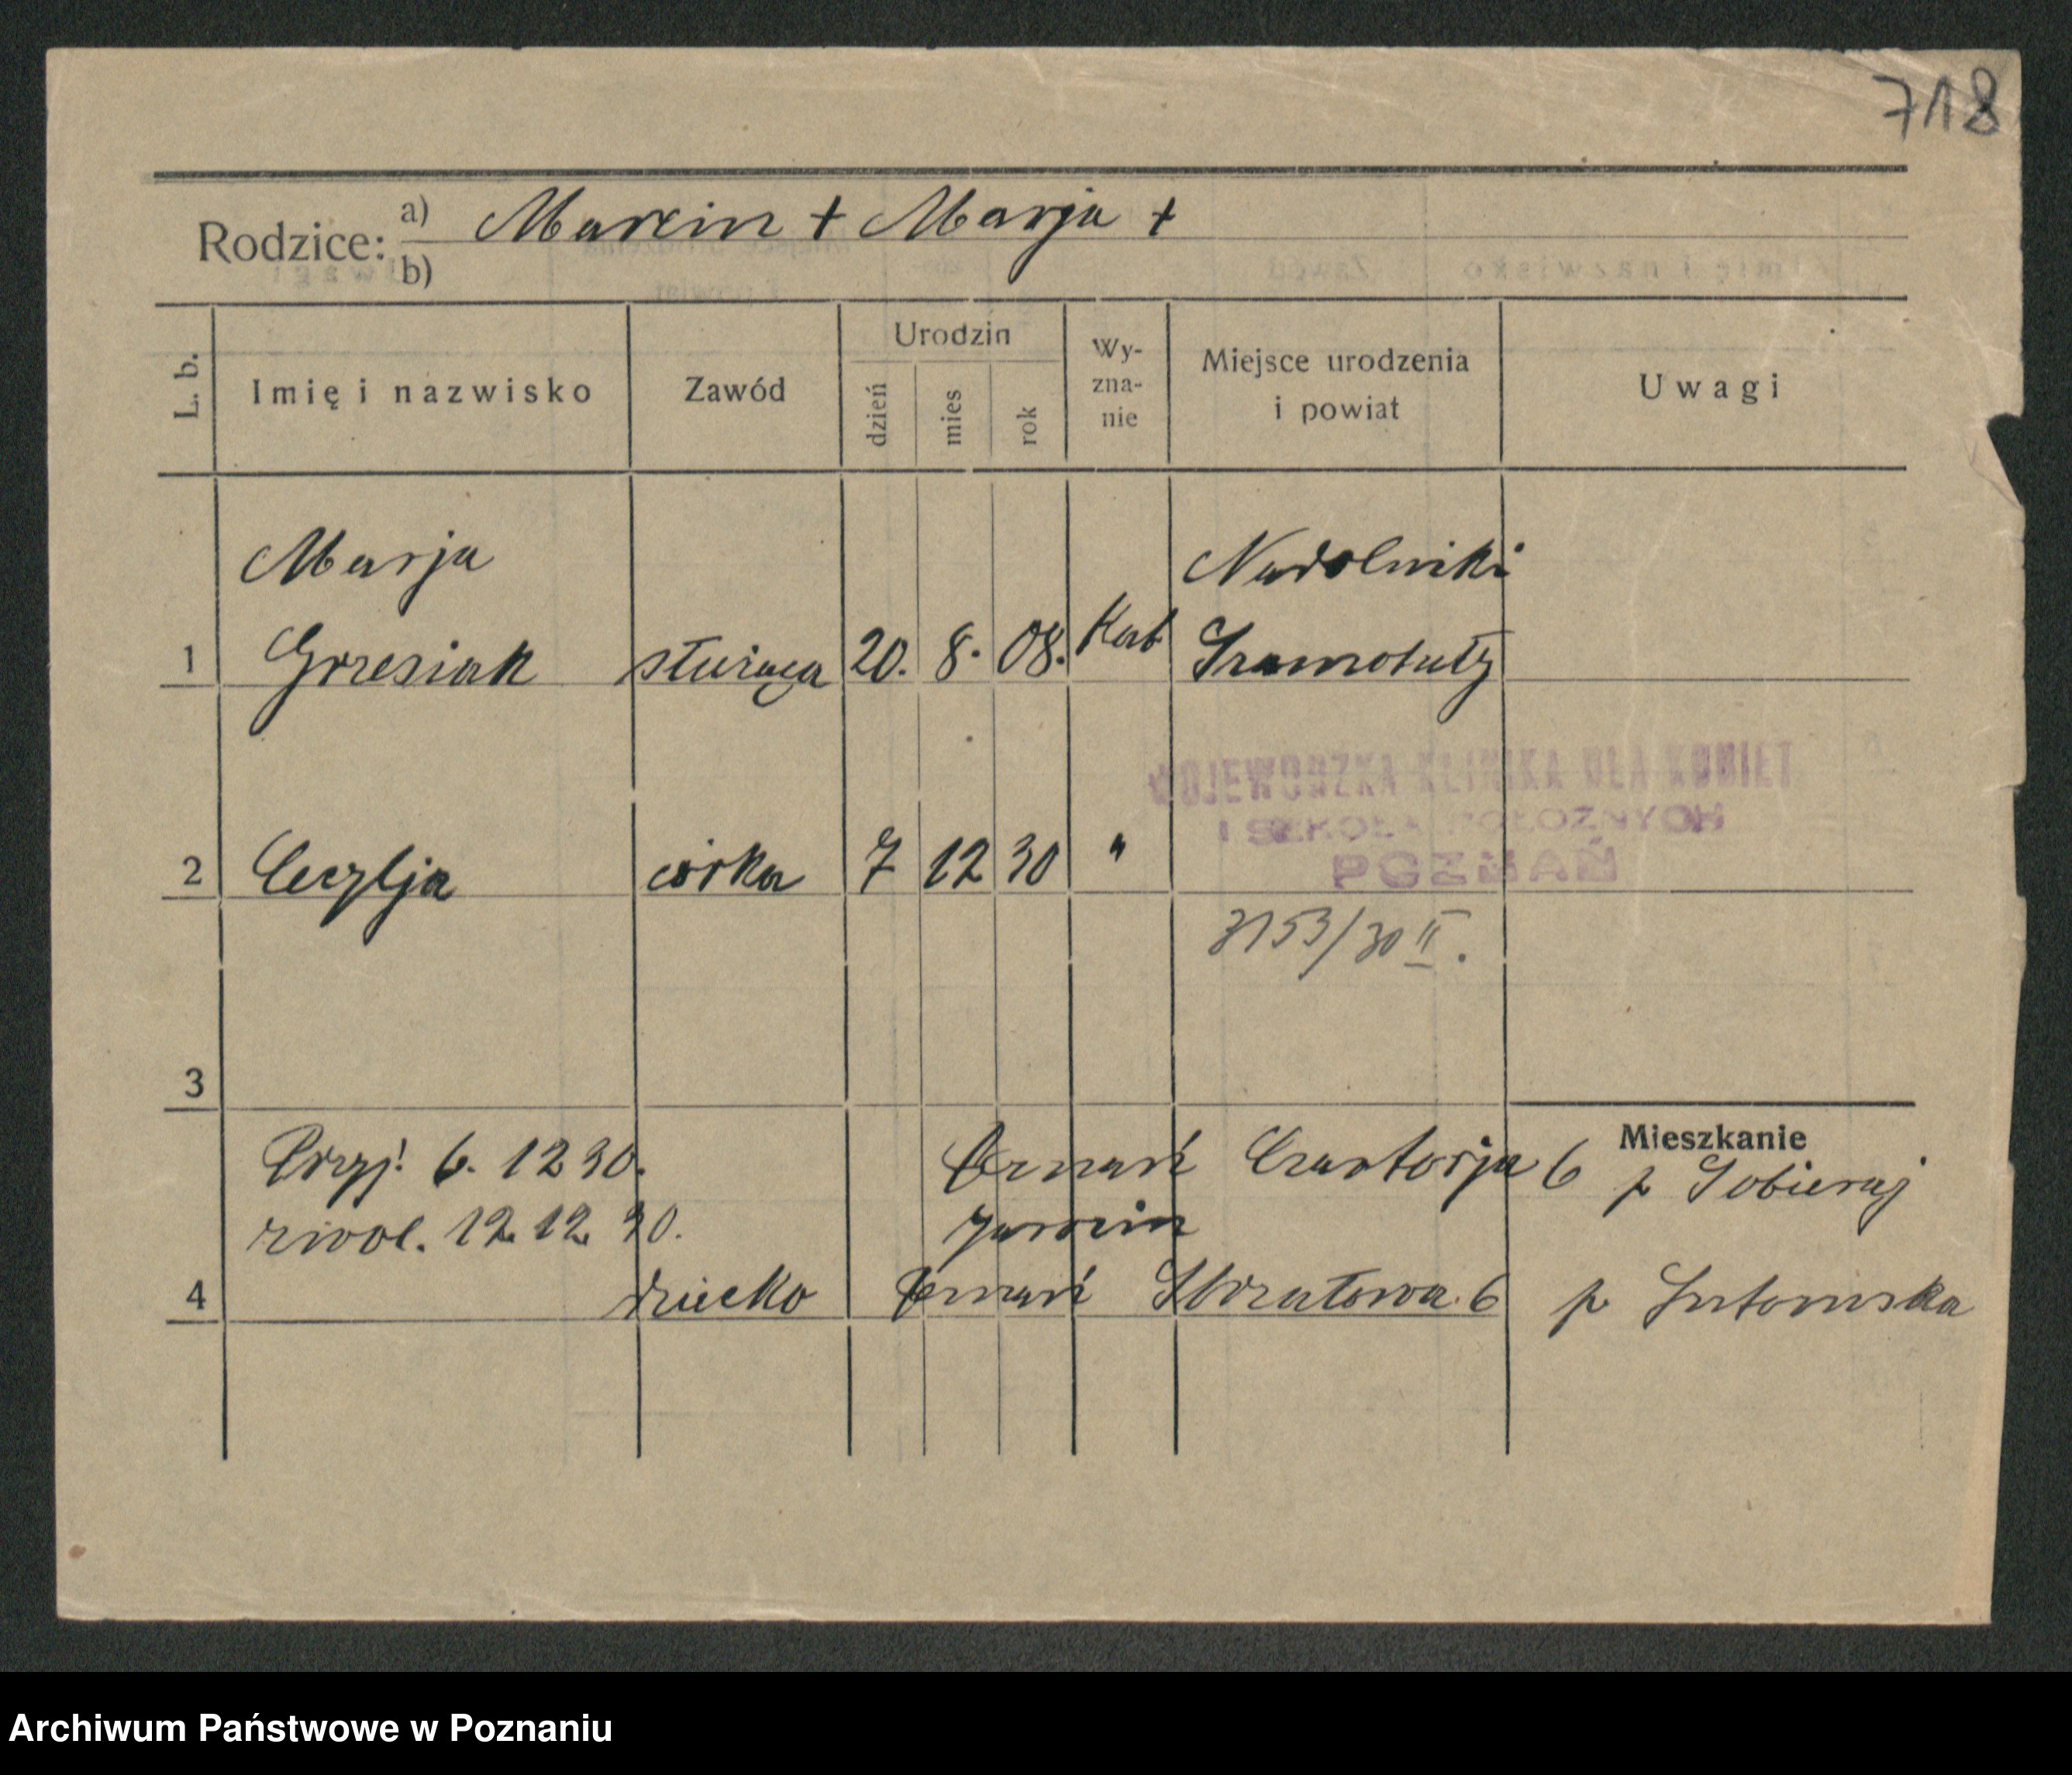 718
Rodzice: a) Marcin + Marja +
b)
L. b. Imię i nazwisko Zawód Urodzin dzień mies rok Wy-zna-nie Miejsce urodzenia i powiat Uwagi
Marja Nadolniki
1 Grzesiak służąca 20. 8. 08. Kat Szamotuły
WOJEWÓDZKA KLINIKA DLA KOBIET
I SZKOŁA POŁOŻNYCH
POZNAŃ
2 Cecylja córka 7 12 30 "
3153/30 II.
3
Mieszkanie
Przyj. 6. 12 30. Poznań Czartorja 6 p Sobieraj
zwol. 12. 12. 30. Jarocin
4 dziecko Poznań Strzałowa 6 p
Archiwum Państwowe w Poznaniu